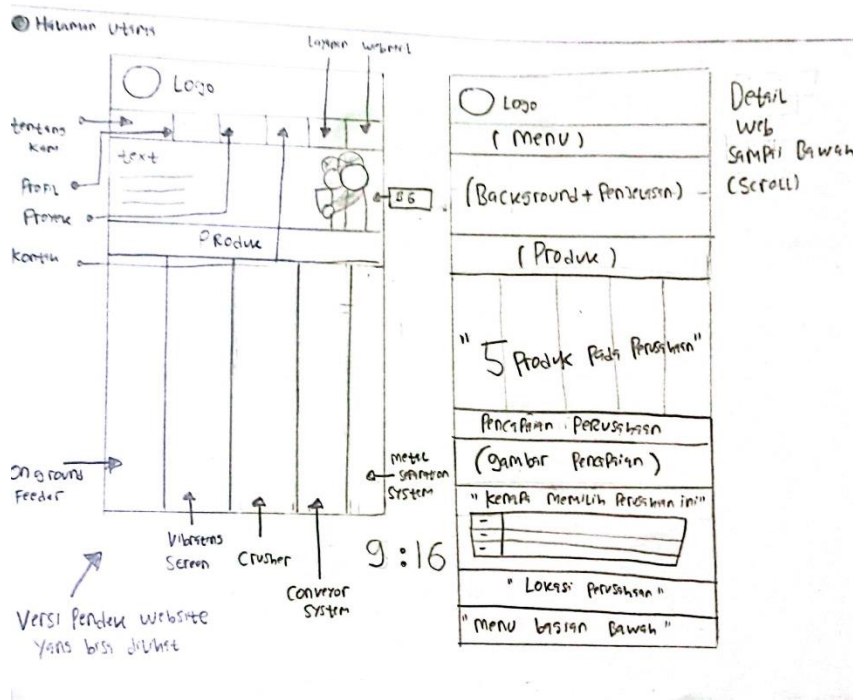 Halaman Utama
Layanan webmail
Logo
tentang
Kami
text
Profil
BG
Proyek
PRoduk
Kontak
On ground
Feeder
Vibrating
Screen
Crusher
Conveyor
System
metal
separation
System
9:16
Versi Pendek website
yang bisa dilihat
Logo
(Menu)
(Background + Penjelasan)
(Produk)
"5 Produk Pada Perusahaan"
Pencapaian Perusahaan
(gambar Pencapaian)
"Kenapa Memilih Perusahaan ini"
"Lokasi Perusahaan"
"menu bagian Bawah"
Detail
Web
Sampai Bawah
(Scroll)